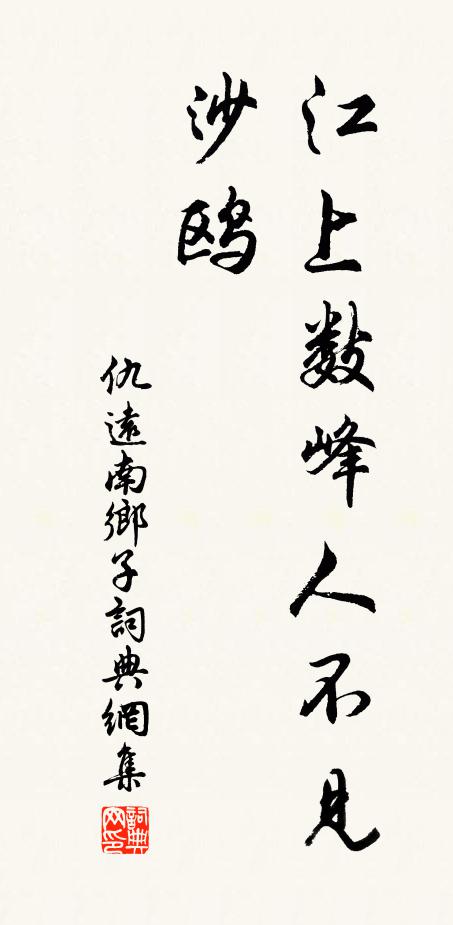 江上数峰人不見
沙鸥
仇遠南鄉子詞典網集
詞典网印